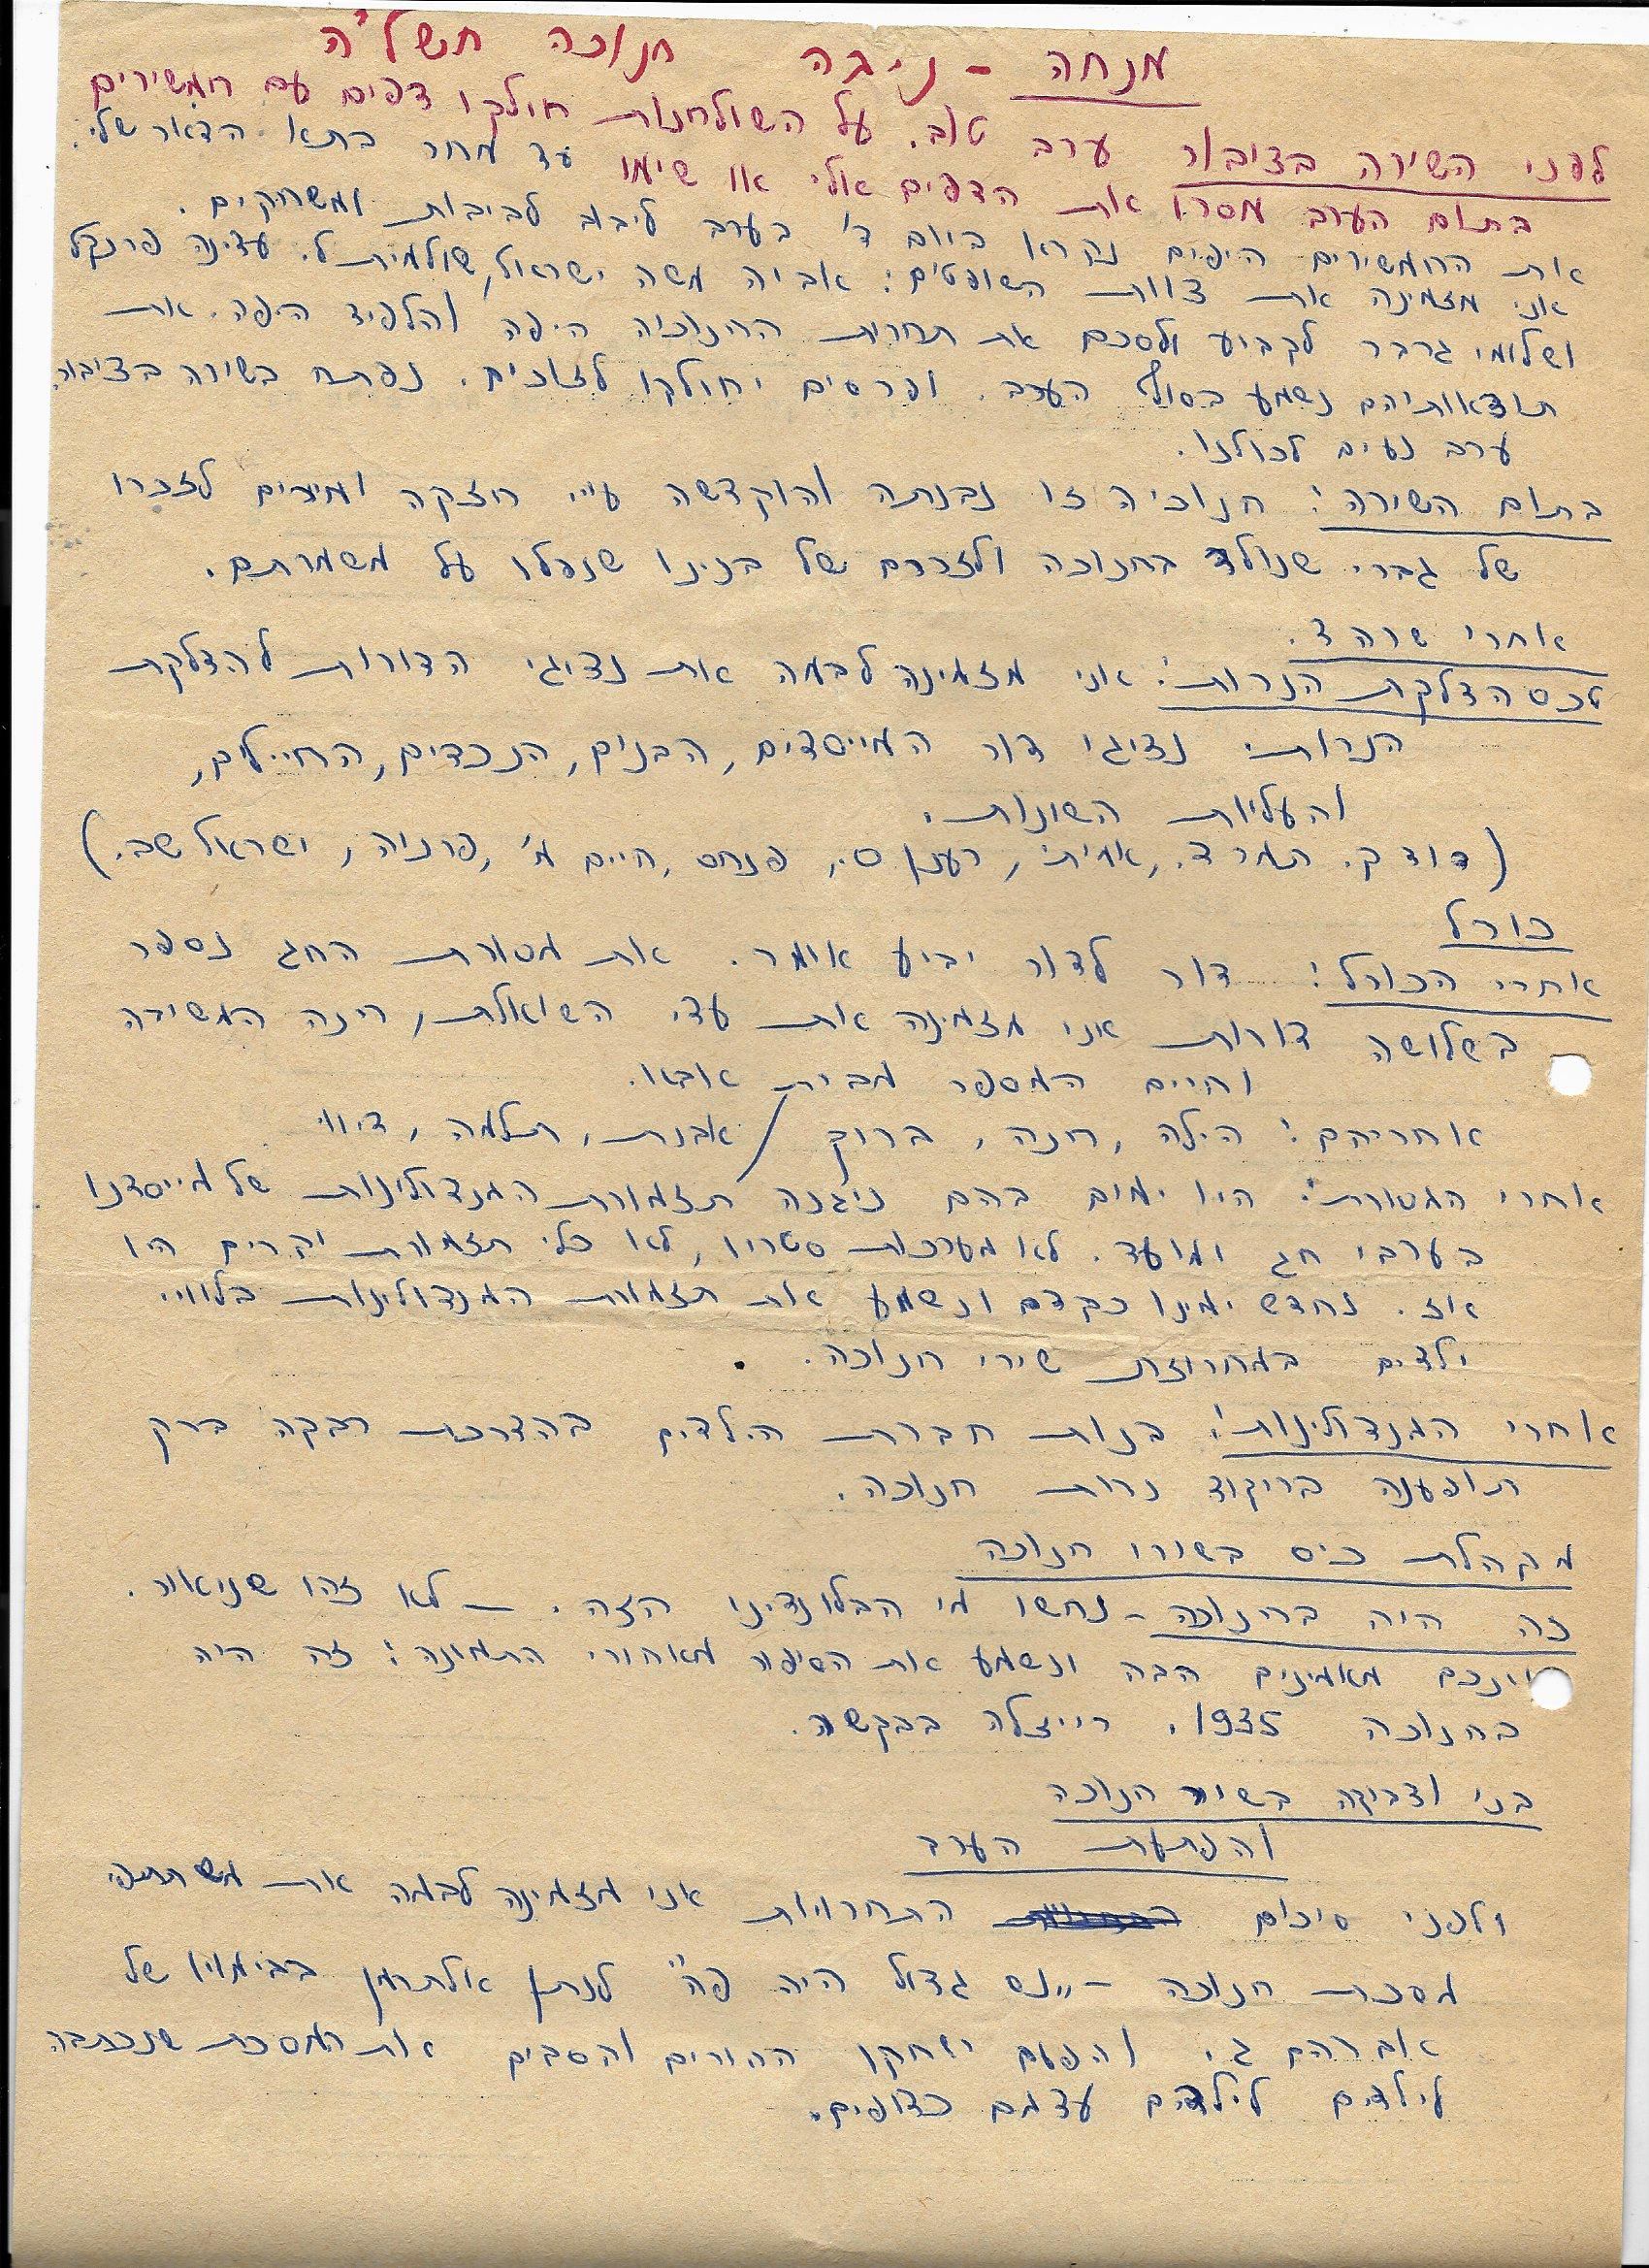 מנחה - ניבה חנוכה תשל"ה
לפני השירה בציבור ערב טוב. על השולחנות חולקו דפים עם חמשירים
בתום הערב מסרו את הדפים אלי או שימו עד מחר בתא הדואר שלי.
את החמשירים היפים נקרא ביום ד' בערב ליבוב לביבות ומשחקים.
אני מזמינה את צוות השופטים: אביה משה ישראל, שולמית ל. עדינה פרנקל
ושלומי גרבר לקביע ולסכם את תחרות החנוכיה היפה והלפיד היפה. את
תוצאותיהם נשמע בסוף הערב. ופרסים יחולקו לזוכים. נפתח בשירה בציבור
ערב נעים לכולנו.
בתום השירה: חנוכיה זו נבנתה והוקדשה ע"י חזקה ומירים לזכרו
של גברי שנולד בחנוכה ולזכרם של בנינו שנפלו על משמרתם.
אחרי שרה צ.
טכס הדלקת הנרות: אני מזמינה לבמה את נציגי הדורות להדלקת
הנרות: נציגי דור המייסדים, הבנים, הנכדים, החיילים,
והעליות השונות.
(דוד ק. תמר צ., אמיתי, רענן ס., פנחס, חיים מ', פרניה, ישראל שב.)
כורל
אחרי הכורל: דור לדור יביע אומר. את מסורת החג נספר
בשלושה דורות אני מזמינה את עדי השואלת, רינה המשירה
וחיים המספר מבית אבא.
אחריהם: הילה, חנה, ברוך / אבנת, תלמה, זיווי
אחרי המסורת: היו ימים בהם ניגנה תזמורת המנדולינות של מייסדנו
בערבי חג ומועד. לא מערכות סטריו, לא כלי תזמורת יקרים היו
אז. נחדש ימינו כקדם ונשמע את תזמורת המנדולינות בלוויי
ילדים במחרוזת שירי חנוכה.
אחרי המנדולינות: בנות חברת הילדים בהדרכת רבקה ברק
תופענה בריקוד נרות חנוכה.
מקהלת כיס בשירי חנוכה
זה היה בחנוכה - נחשו מי הבלונדיני הזה. - לא זהו שניאור.
אינכם מאמינים הבה ונשמע את הסיפור מאחורי התמונה: זה היה
בחנוכה 1935. רייזלה בבקשה.
בני וצביקה בשיר חנוכה
והפתעת הערב
ולפני סיכום התחרויות אני מזמינה לבמה את משתתפי
מסכת חנוכה - "נס גדול היה פה" לנתן אלתרמן בבימויו של
אברהם ג. והפעם ישחקו ההורים והסבים את המסכת שנכתבה
לילדים לילדים עצמם כצופים.